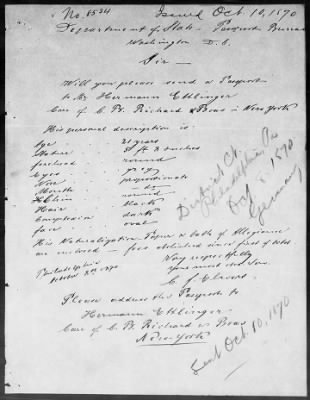 No. 8534 Issued Oct. 10, 1870
Department of State Passport Bureau
Washington D. C.
Sir —
Will you please send a Passport
to Mr Hermann Ettlinger
Care of C. B. Richard & Boas in New York
His personal description is
Age 21 years
Stature 5 ft 8 inches
forehead round
Eyes grey
Nose proportionate
Mouth do
Chin round
Hair black
Complexion dark
face oval
His Naturalization Paper & Oath of Allegiance
are enclosed — fees abolished since first of
Philadelphia Very respectfully
October 8th 1870 Your most
C. F.
Please address the Passport to
Hermann Ettlinger
Care of C. B. Richard & Boas
New-York
District Ct.
Philadelphia Pa
1870
Germany
Sent Oct. 10, 1870